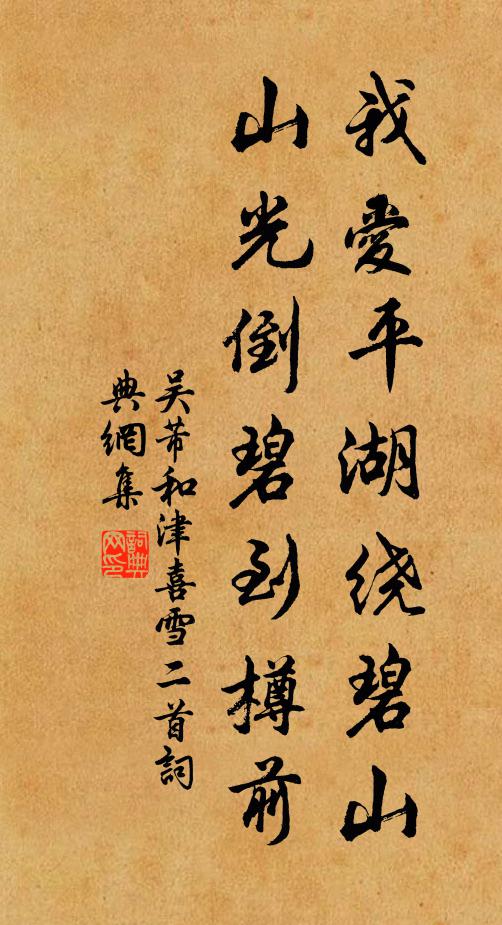 我愛平湖绕碧山
山光倒碧到樽前
吴芾和津喜雪二首詞
典網集
詞典
网印